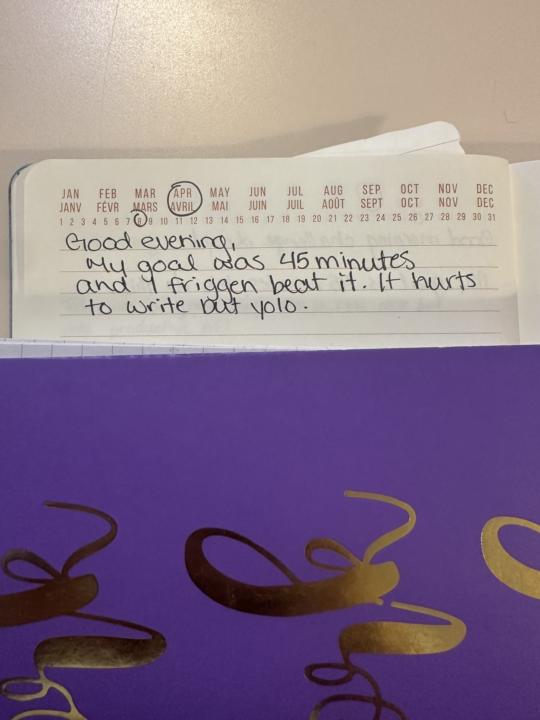 JAN FEB MAR APR MAY JUN JUL AUG SEP OCT NOV DEC
JANV FÉVR MARS AVRIL MAI JUIN JUIL AOÛT SEPT OCT NOV DEC
1 2 3 4 5 6 7 8 9 10 11 12 13 14 15 16 17 18 19 20 21 22 23 24 25 26 27 28 29 30 31
Good evening,
My goal was 45 minutes
and I friggen beat it. It hurts
to write but yolo.